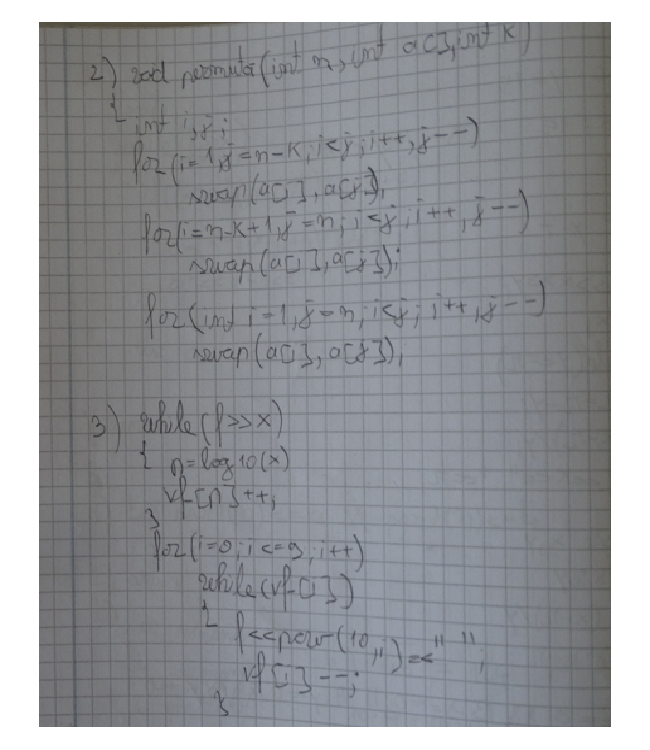 2) void permuta(int n, int a[], int k)
{
int i,j;
for(i=1,j=n-k; i<j; i++, j--)
swap(a[i], a[j]);
for(i=n-k+1, j=n; i<j; i++, j--)
swap(a[i], a[j]);
for(int i=1, j=n; i<j; i++, j--)
swap(a[i], a[j]);
3) while(f>>x)
{ n=log10(x)
vf[n]++;
}
for(i=0; i<=9; i++)
while(vf[i])
{
f<<pow(10,i)<<" ";
vf[i]--;
}